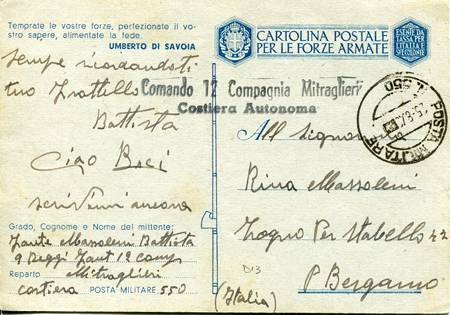 Temprate le vostre forze, perfezionate il vo-
stro sapere, alimentate la fede.
UMBERTO DI SAVOIA
sempre ricordandoti
tuo Fratello
Battista
Ciao Baci
scrivimi ancora
Grado, Cognome e Nome del mittente:
Fante Massoleni Battista
9 Regg Fant 12 comp
Reparto Mitraglieri
costiera POSTA MILITARE 550
CARTOLINA POSTALE
PER LE FORZE ARMATE
ESENTE DA
TASSA PER
L'ITALIA E
LE COLONIE
Comando 12 Compagnia Mitraglieri
Costiera Autonoma
POSTA MILITARE
N. 550
All Signora
Rina Massoleni
Zogno Per Stabello 42
P Bergamo
(Italia)